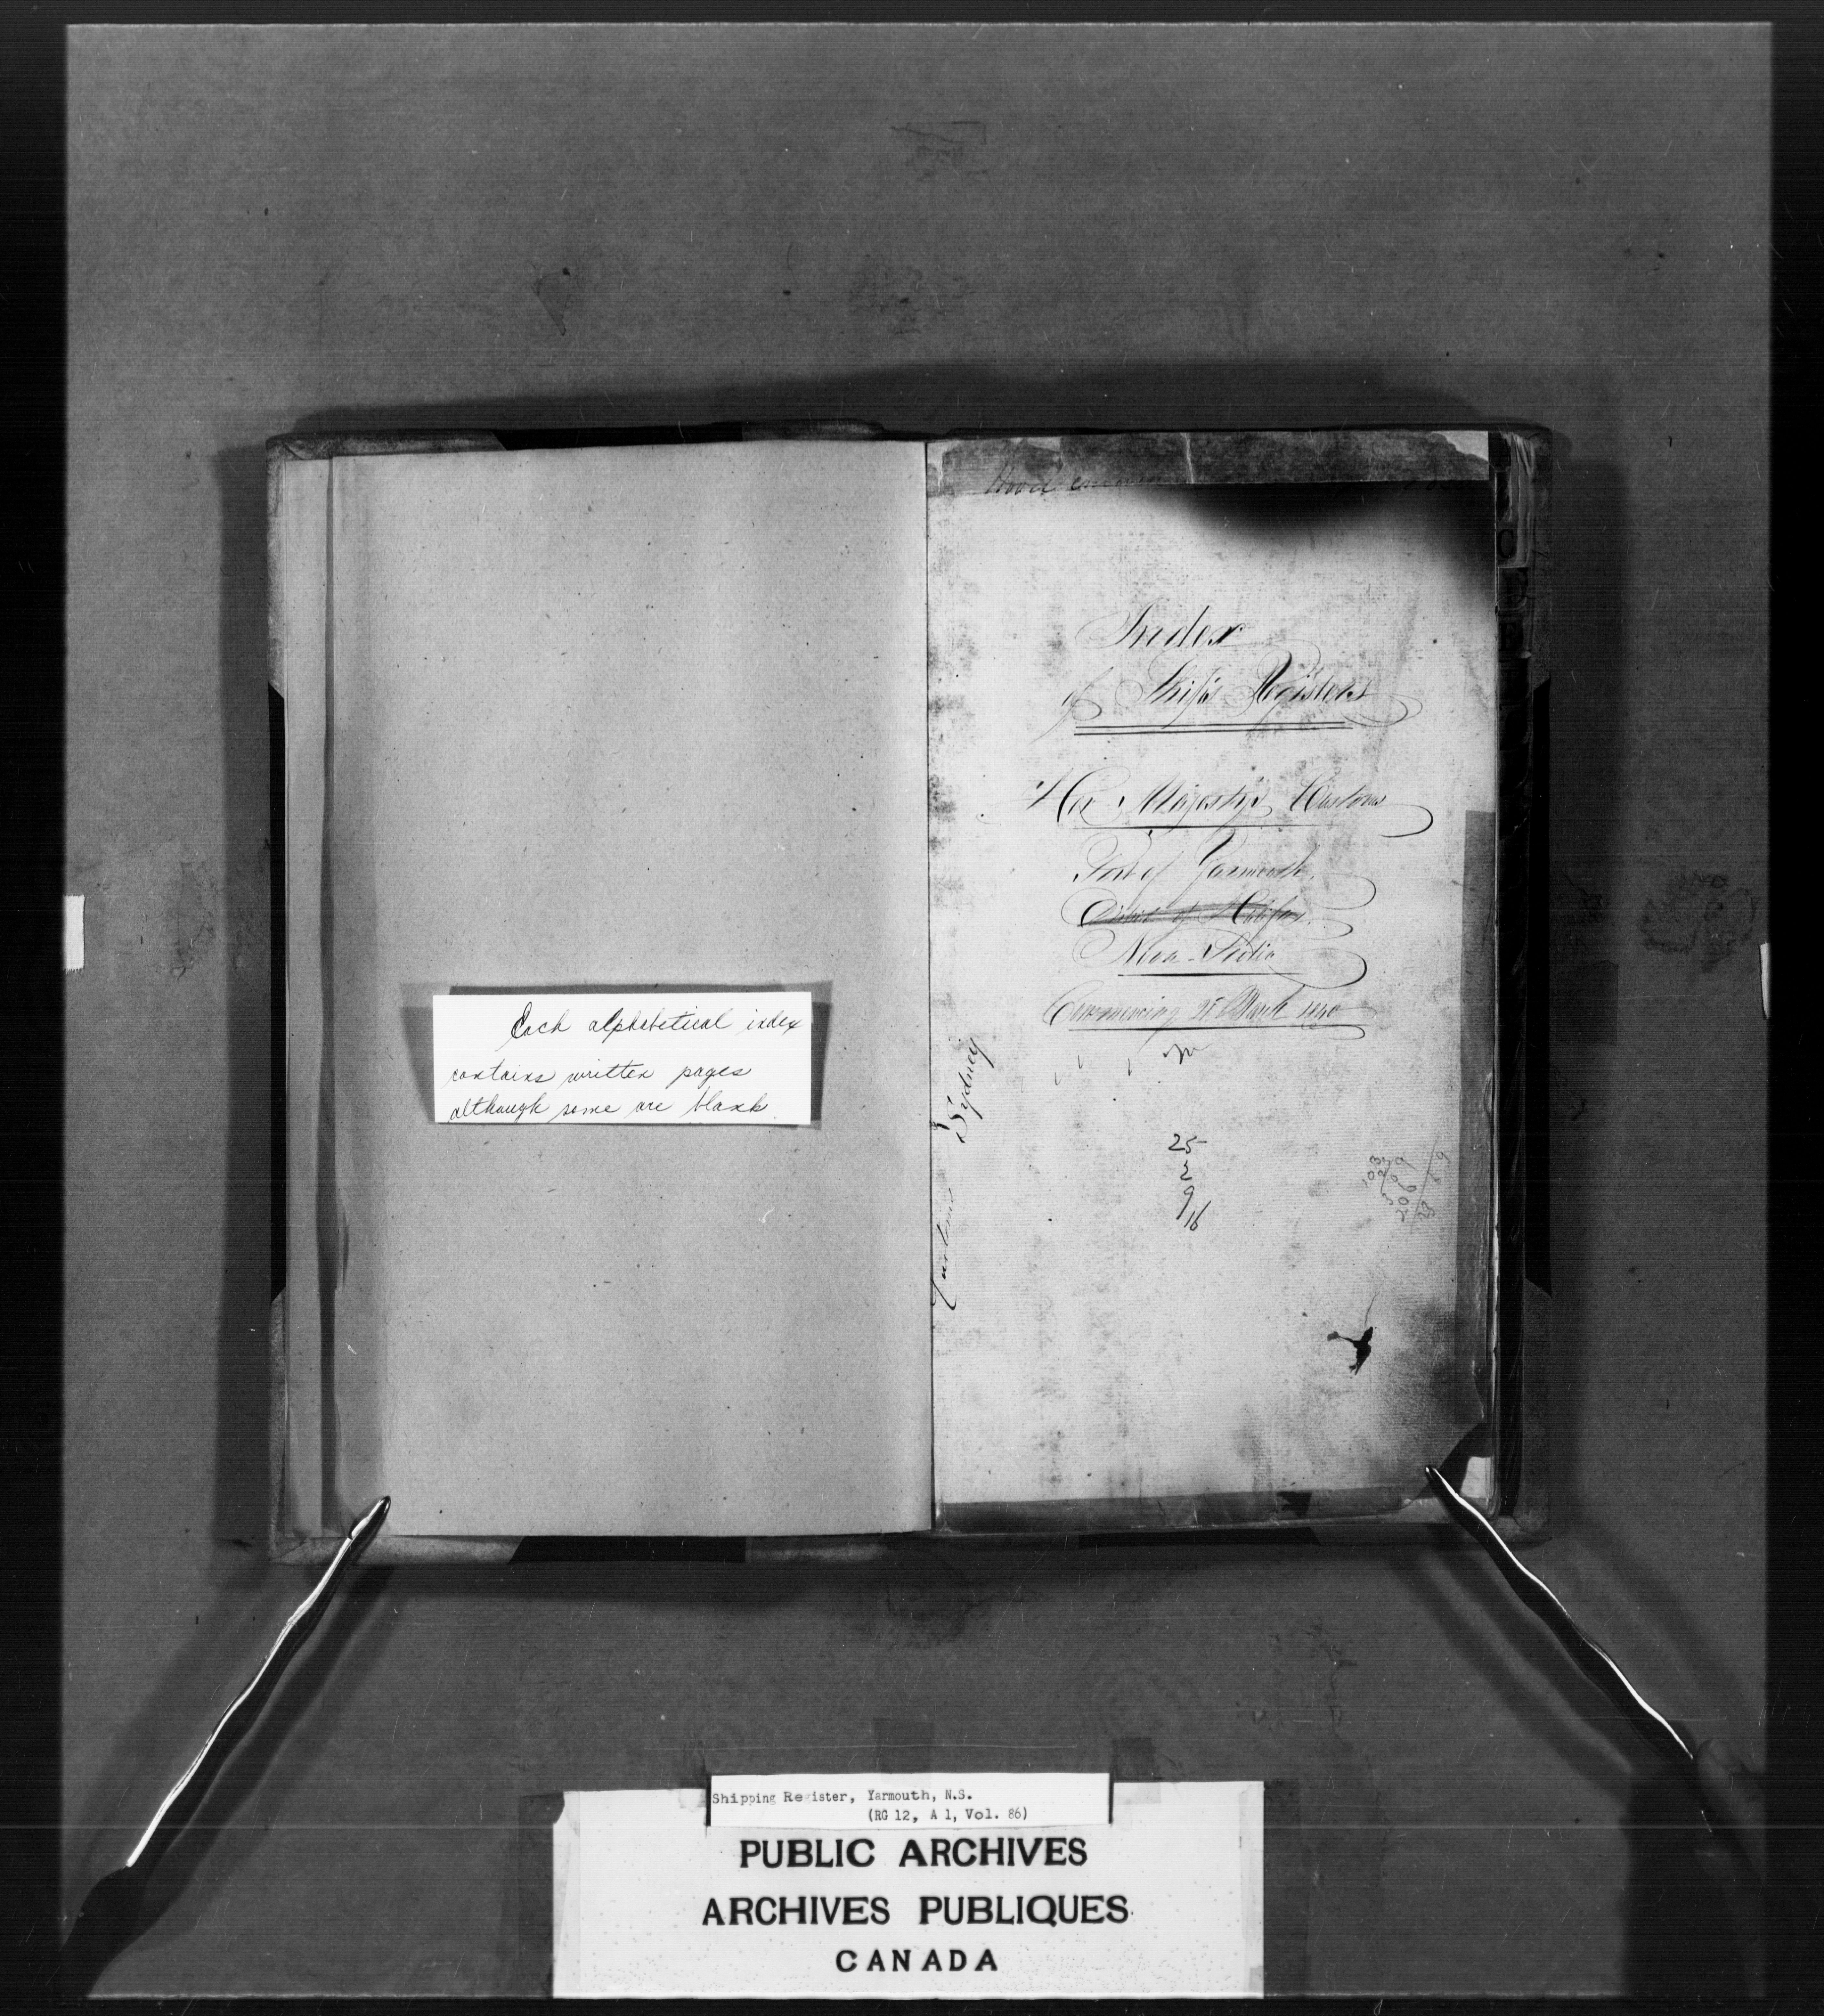 Each alphabetical index
contains written pages
although some are blank.
Index
of Ship's Registers
Her Majesty's Customs
Port of Yarmouth.
District of Halifax.
Nova-Scotia
Commencing March 1840
Sydney
25
2
9
16
Shipping Register, Yarmouth, N.S.
(RG 12, A 1, Vol. 86)
PUBLIC ARCHIVES
ARCHIVES PUBLIQUES
CANADA